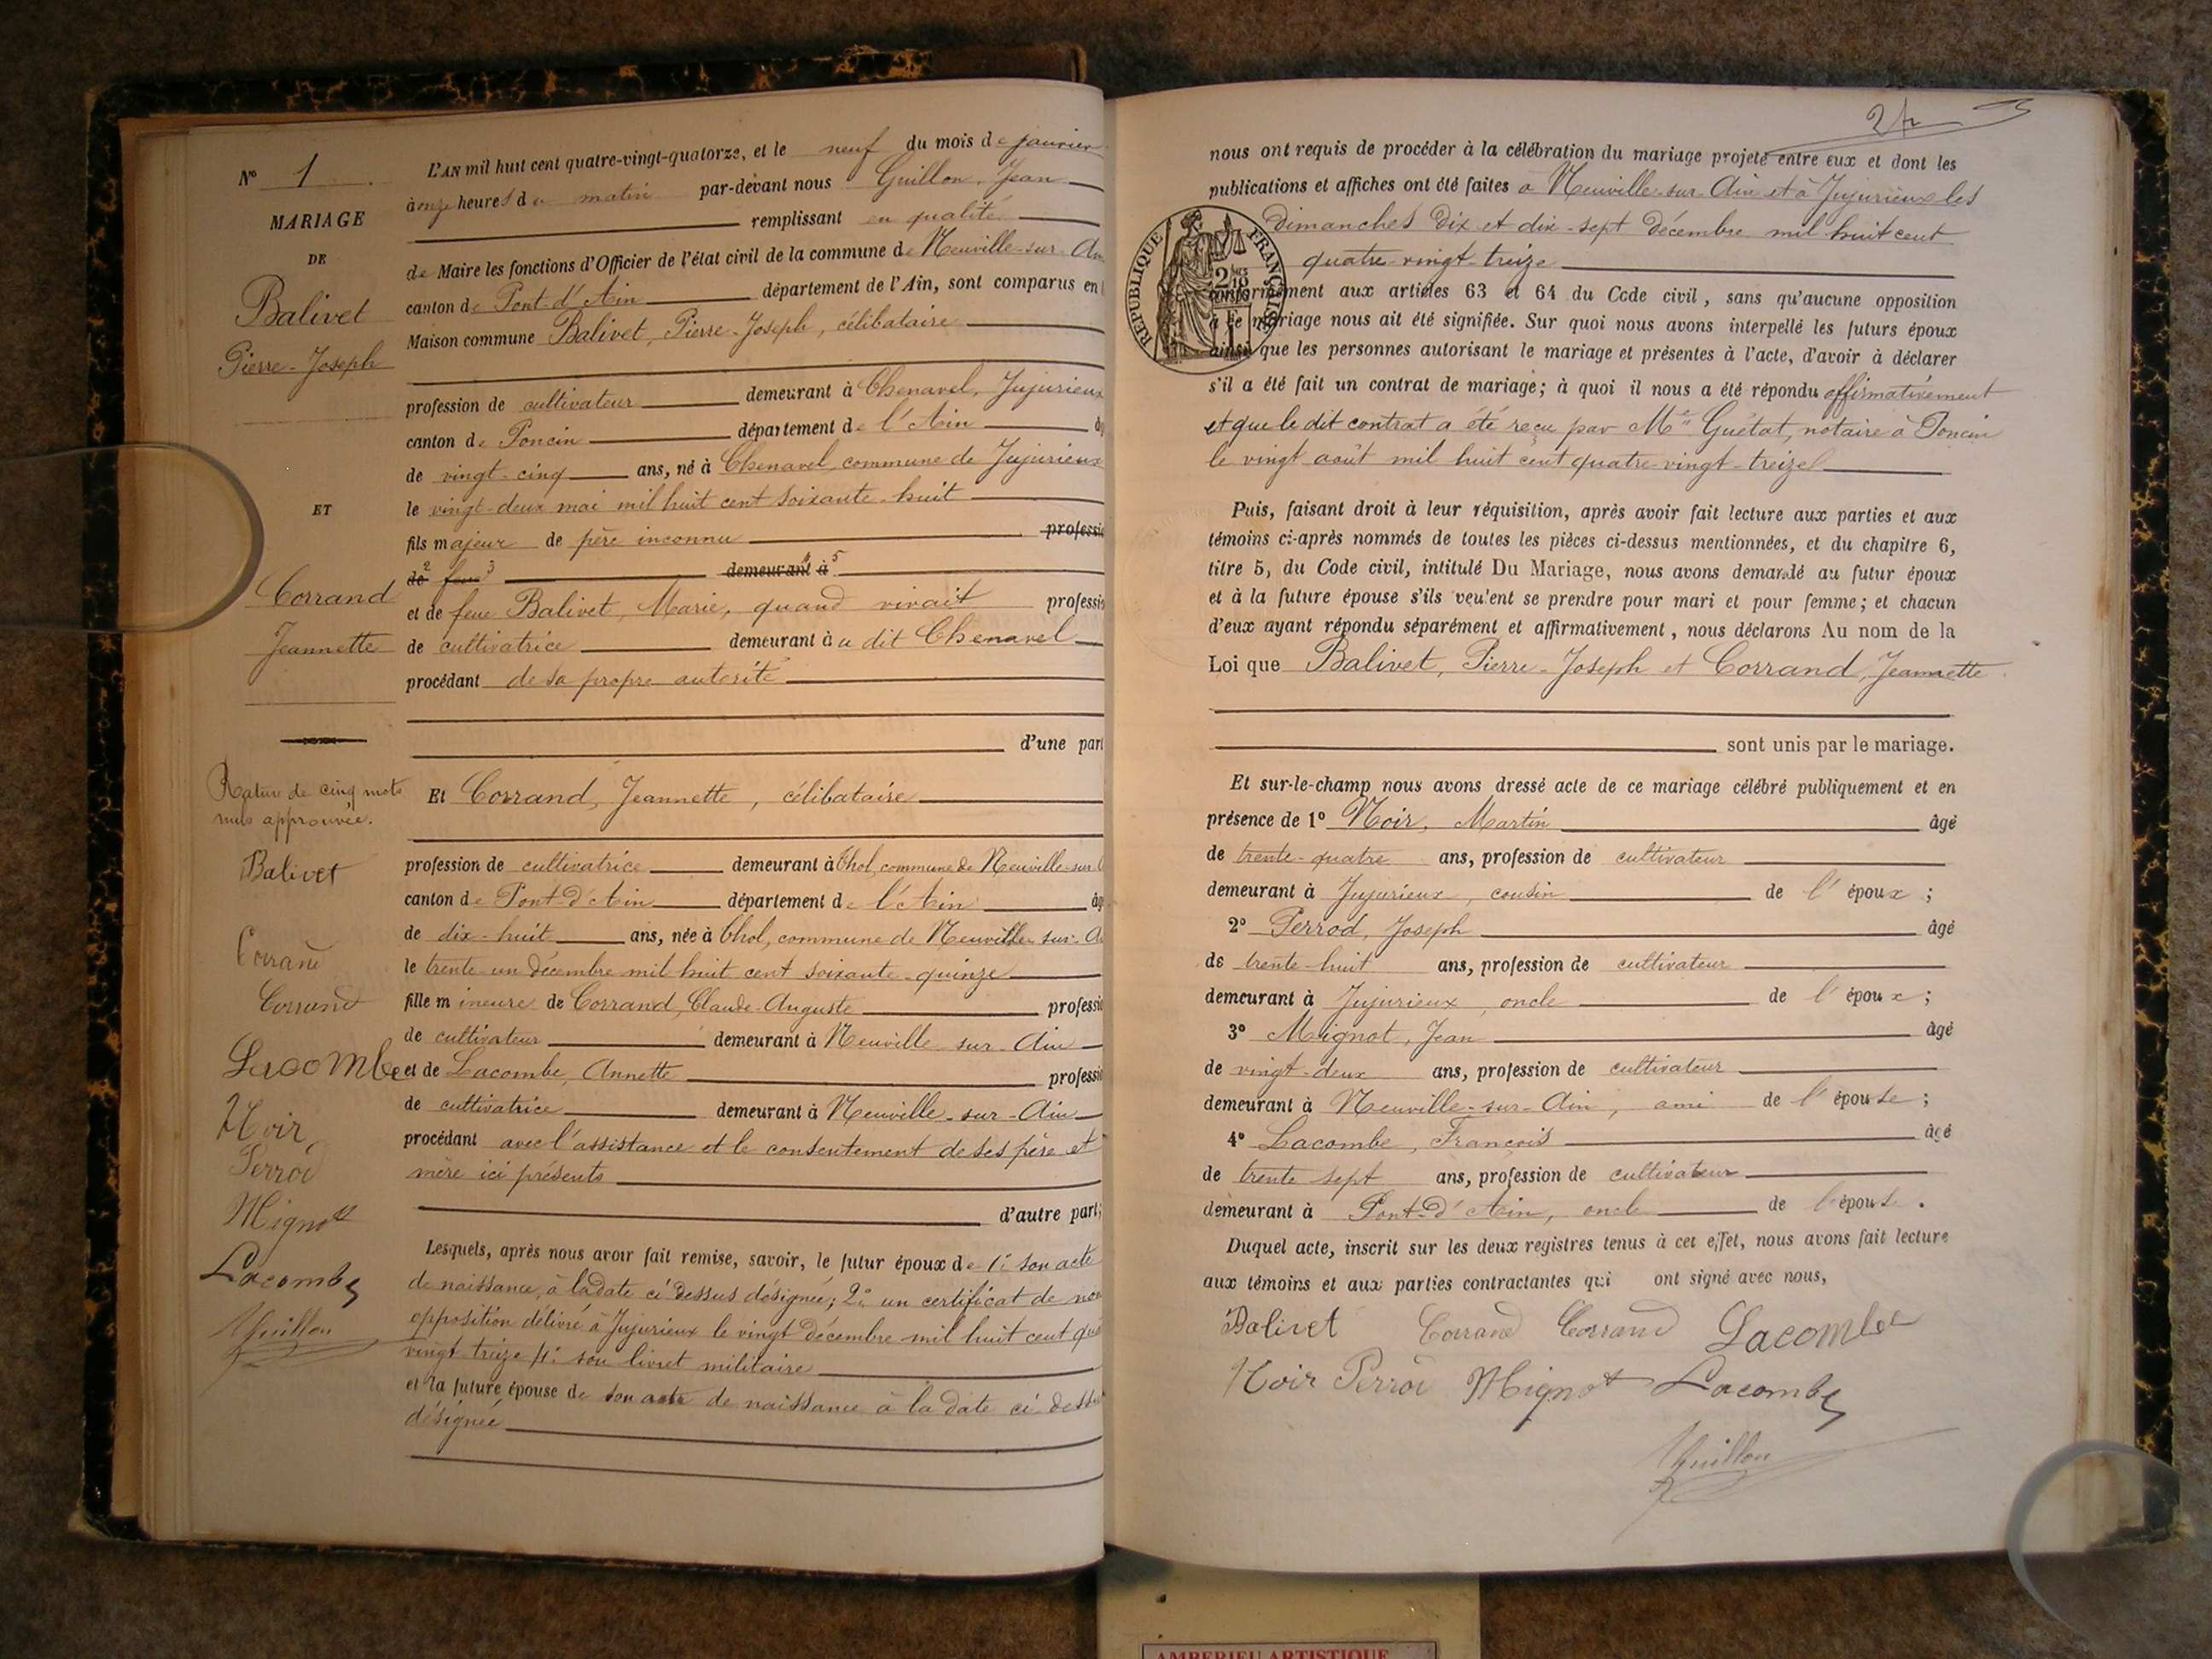 N° 1
MARIAGE
DE
Balivet
Pierre-Joseph
ET
Corrand
Jeannette
Rature de cinq mots
nuls approuvée.
Balivet
Corrand
Corrand
Lacombe
Noir
Perrod
Mignot
Lacombe
Guillon
L'AN mil huit cent quatre-vingt-quatorze, et le neuf du mois de janvier
à onze heures du matin par-devant nous Guillon, Jean
remplissant en qualité
de Maire les fonctions d'Officier de l'état civil de la commune de Neuville-sur-Ain
canton de Pont-d'Ain département de l'Ain, sont comparus en
Maison commune Balivet, Pierre-Joseph, célibataire
profession de cultivateur demeurant à Chenavel, Jujurieux
canton de Poncin département de l'Ain
de vingt-cinq ans, né à Chenavel, commune de Jujurieux
le vingt-deux mai mil huit cent soixante-huit
fils majeur de père inconnu professi
de 2 feu 3 demeurant 4 à 5
et de feue Balivet, Marie, quand vivait professi
de cultivatrice demeurant à u dit Chenavel
procédant de sa propre autorité
d'une part
Et Corrand, Jeannette, célibataire
profession de cultivatrice demeurant à Thol, commune de Neuville-sur-
canton de Pont-d'Ain département de l'Ain âg
de dix-huit ans, née à Thol, commune de Neuville-sur-A
le trente-un décembre mil huit cent soixante-quinze
fille mineure de Corrand, Claude-Auguste professi
de cultivateur demeurant à Neuville-sur-Ain
et de Lacombe, Annette professi
de cultivatrice demeurant à Neuville-sur-Ain
procédant avec l'assistance et le consentement de ses père et
mère ici présents
d'autre part;
Lesquels, après nous avoir fait remise, savoir, le futur époux de 1° son acte
de naissance, à la date ci-dessus désignée; 2° un certificat de non
opposition délivré à Jujurieux le vingt décembre mil huit cent qua
vingt-treize 4° son livret militaire
et la future épouse de son acte de naissance à la date ci-dessus
désignée
24
nous ont requis de procéder à la célébration du mariage projeté entre eux et dont les
publications et affiches ont été faites à Neuville-sur-Ain et à Jujurieux les
dimanches dix et dix-sept décembre mil huit cent
quatre-vingt-treize
RÉPUBLIQUE FRANÇAISE
conformément aux articles 63 et 64 du Code civil, sans qu'aucune opposition
à ce mariage nous ait été signifiée. Sur quoi nous avons interpellé les futurs époux
ainsi que les personnes autorisant le mariage et présentes à l'acte, d'avoir à déclarer
s'il a été fait un contrat de mariage; à quoi il nous a été répondu affirmativement
et que le dit contrat a été reçu par Me Guétat, notaire à Poncin
le vingt août mil huit cent quatre-vingt-treize
Puis, faisant droit à leur réquisition, après avoir fait lecture aux parties et aux
témoins ci-après nommés de toutes les pièces ci-dessus mentionnées, et du chapitre 6,
titre 5, du Code civil, intitulé Du Mariage, nous avons demandé au futur époux
et à la future épouse s'ils veulent se prendre pour mari et pour femme; et chacun
d'eux ayant répondu séparément et affirmativement, nous déclarons Au nom de la
Loi que Balivet, Pierre-Joseph et Corrand, Jeannette
sont unis par le mariage.
Et sur-le-champ nous avons dressé acte de ce mariage célébré publiquement et en
présence de 1° Noir, Martin âgé
de trente-quatre ans, profession de cultivateur
demeurant à Jujurieux, cousin de l'époux;
2° Perrod, Joseph âgé
de trente-huit ans, profession de cultivateur
demeurant à Jujurieux, oncle de l'époux;
3° Mignot, Jean âgé
de vingt-deux ans, profession de cultivateur
demeurant à Neuville-sur-Ain, ami de l'épouse;
4° Lacombe, François âgé
de trente sept ans, profession de cultivateur
demeurant à Pont-d'Ain, oncle de l'épouse.
Duquel acte, inscrit sur les deux registres tenus à cet effet, nous avons fait lecture
aux témoins et aux parties contractantes qui ont signé avec nous,
Balivet Corrand Corrand Lacombe
Noir Perrod Mignot Lacombe
Guillon
AMBERIEU ARTISTIQUE